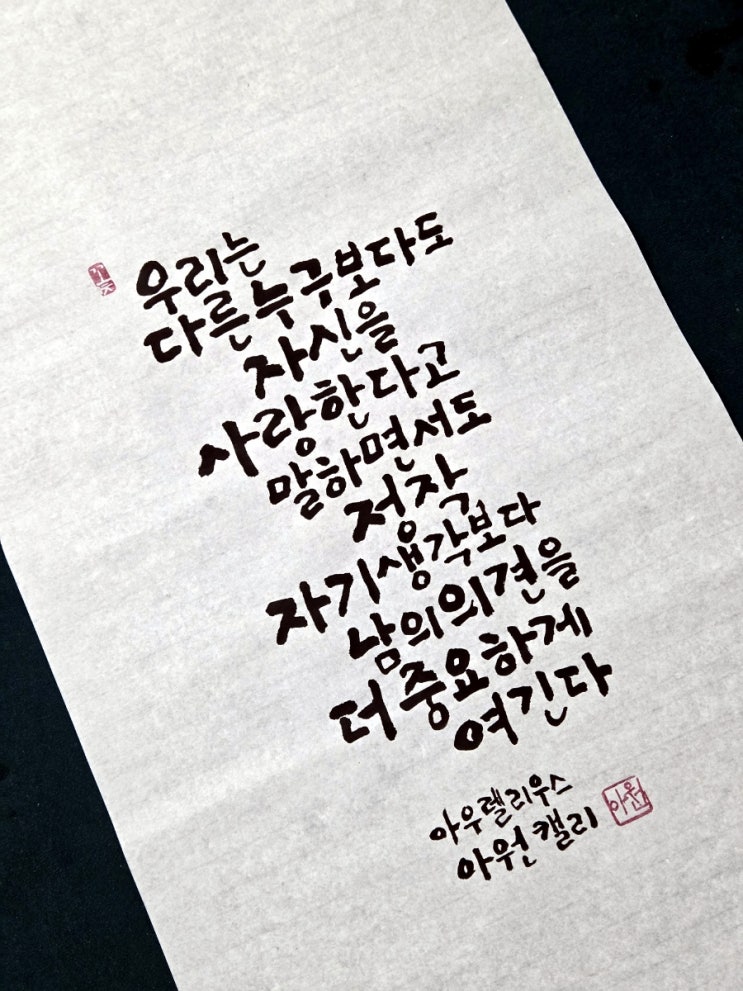 우리는
다른누구보다도
자신을
사랑한다고
말하면서도
정작
자기생각보다
남의의견을
더중요하게
여긴다
아우렐리우스
아원캘리
아원